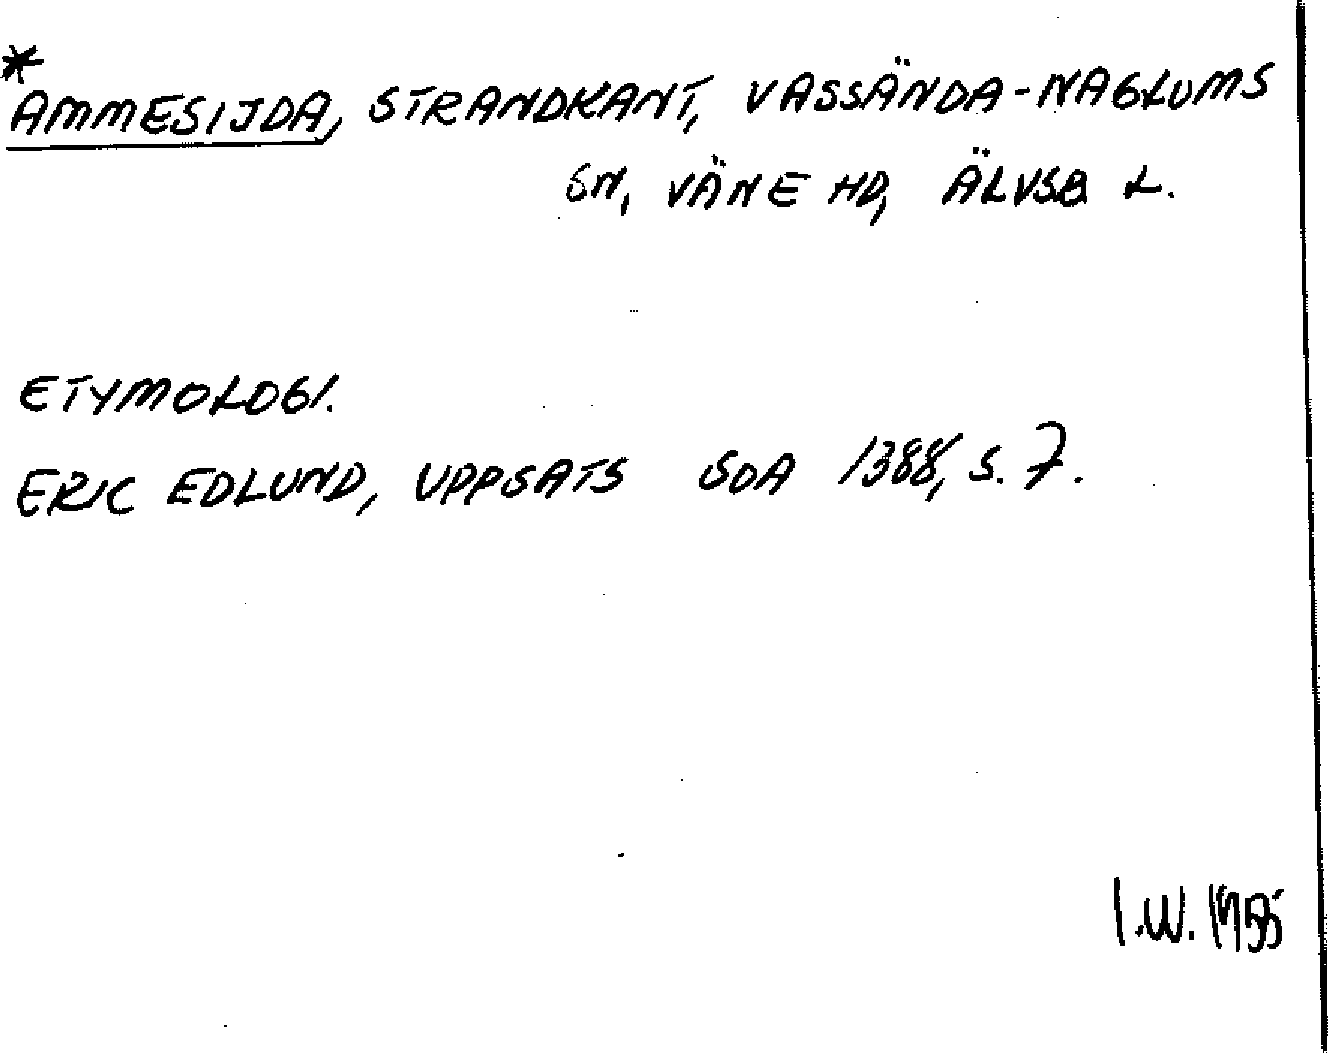 *
AMMESIJDA, STRANDKANT, VASSÄNDA-NAGLUMS
SN, VÄNE HD, ÄLVSB L.
ETYMOLOGI.
ERIC EDLUND, UPPSATS SOA 1388, S. 7.
I.W.